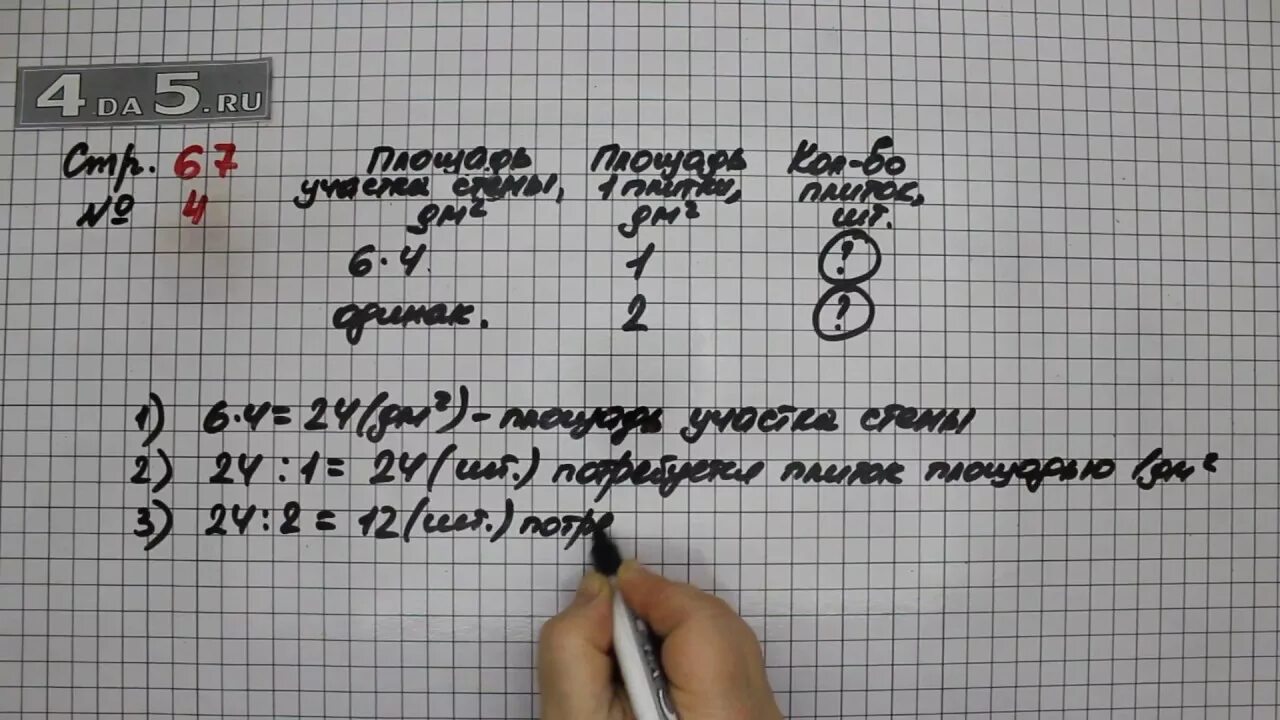 4DA5.RU
Стр. 67
№ 4
Площадь участка стены, дм²
Площадь 1 плитки, дм²
Кол-во плиток, шт.
6·4 1 ?
одинак. 2 ?
1) 6·4=24(дм²)-площадь участка стены
2) 24:1=24(шт.) потребуется плиток площадью 1дм²
3) 24:2=12(шт.) потре